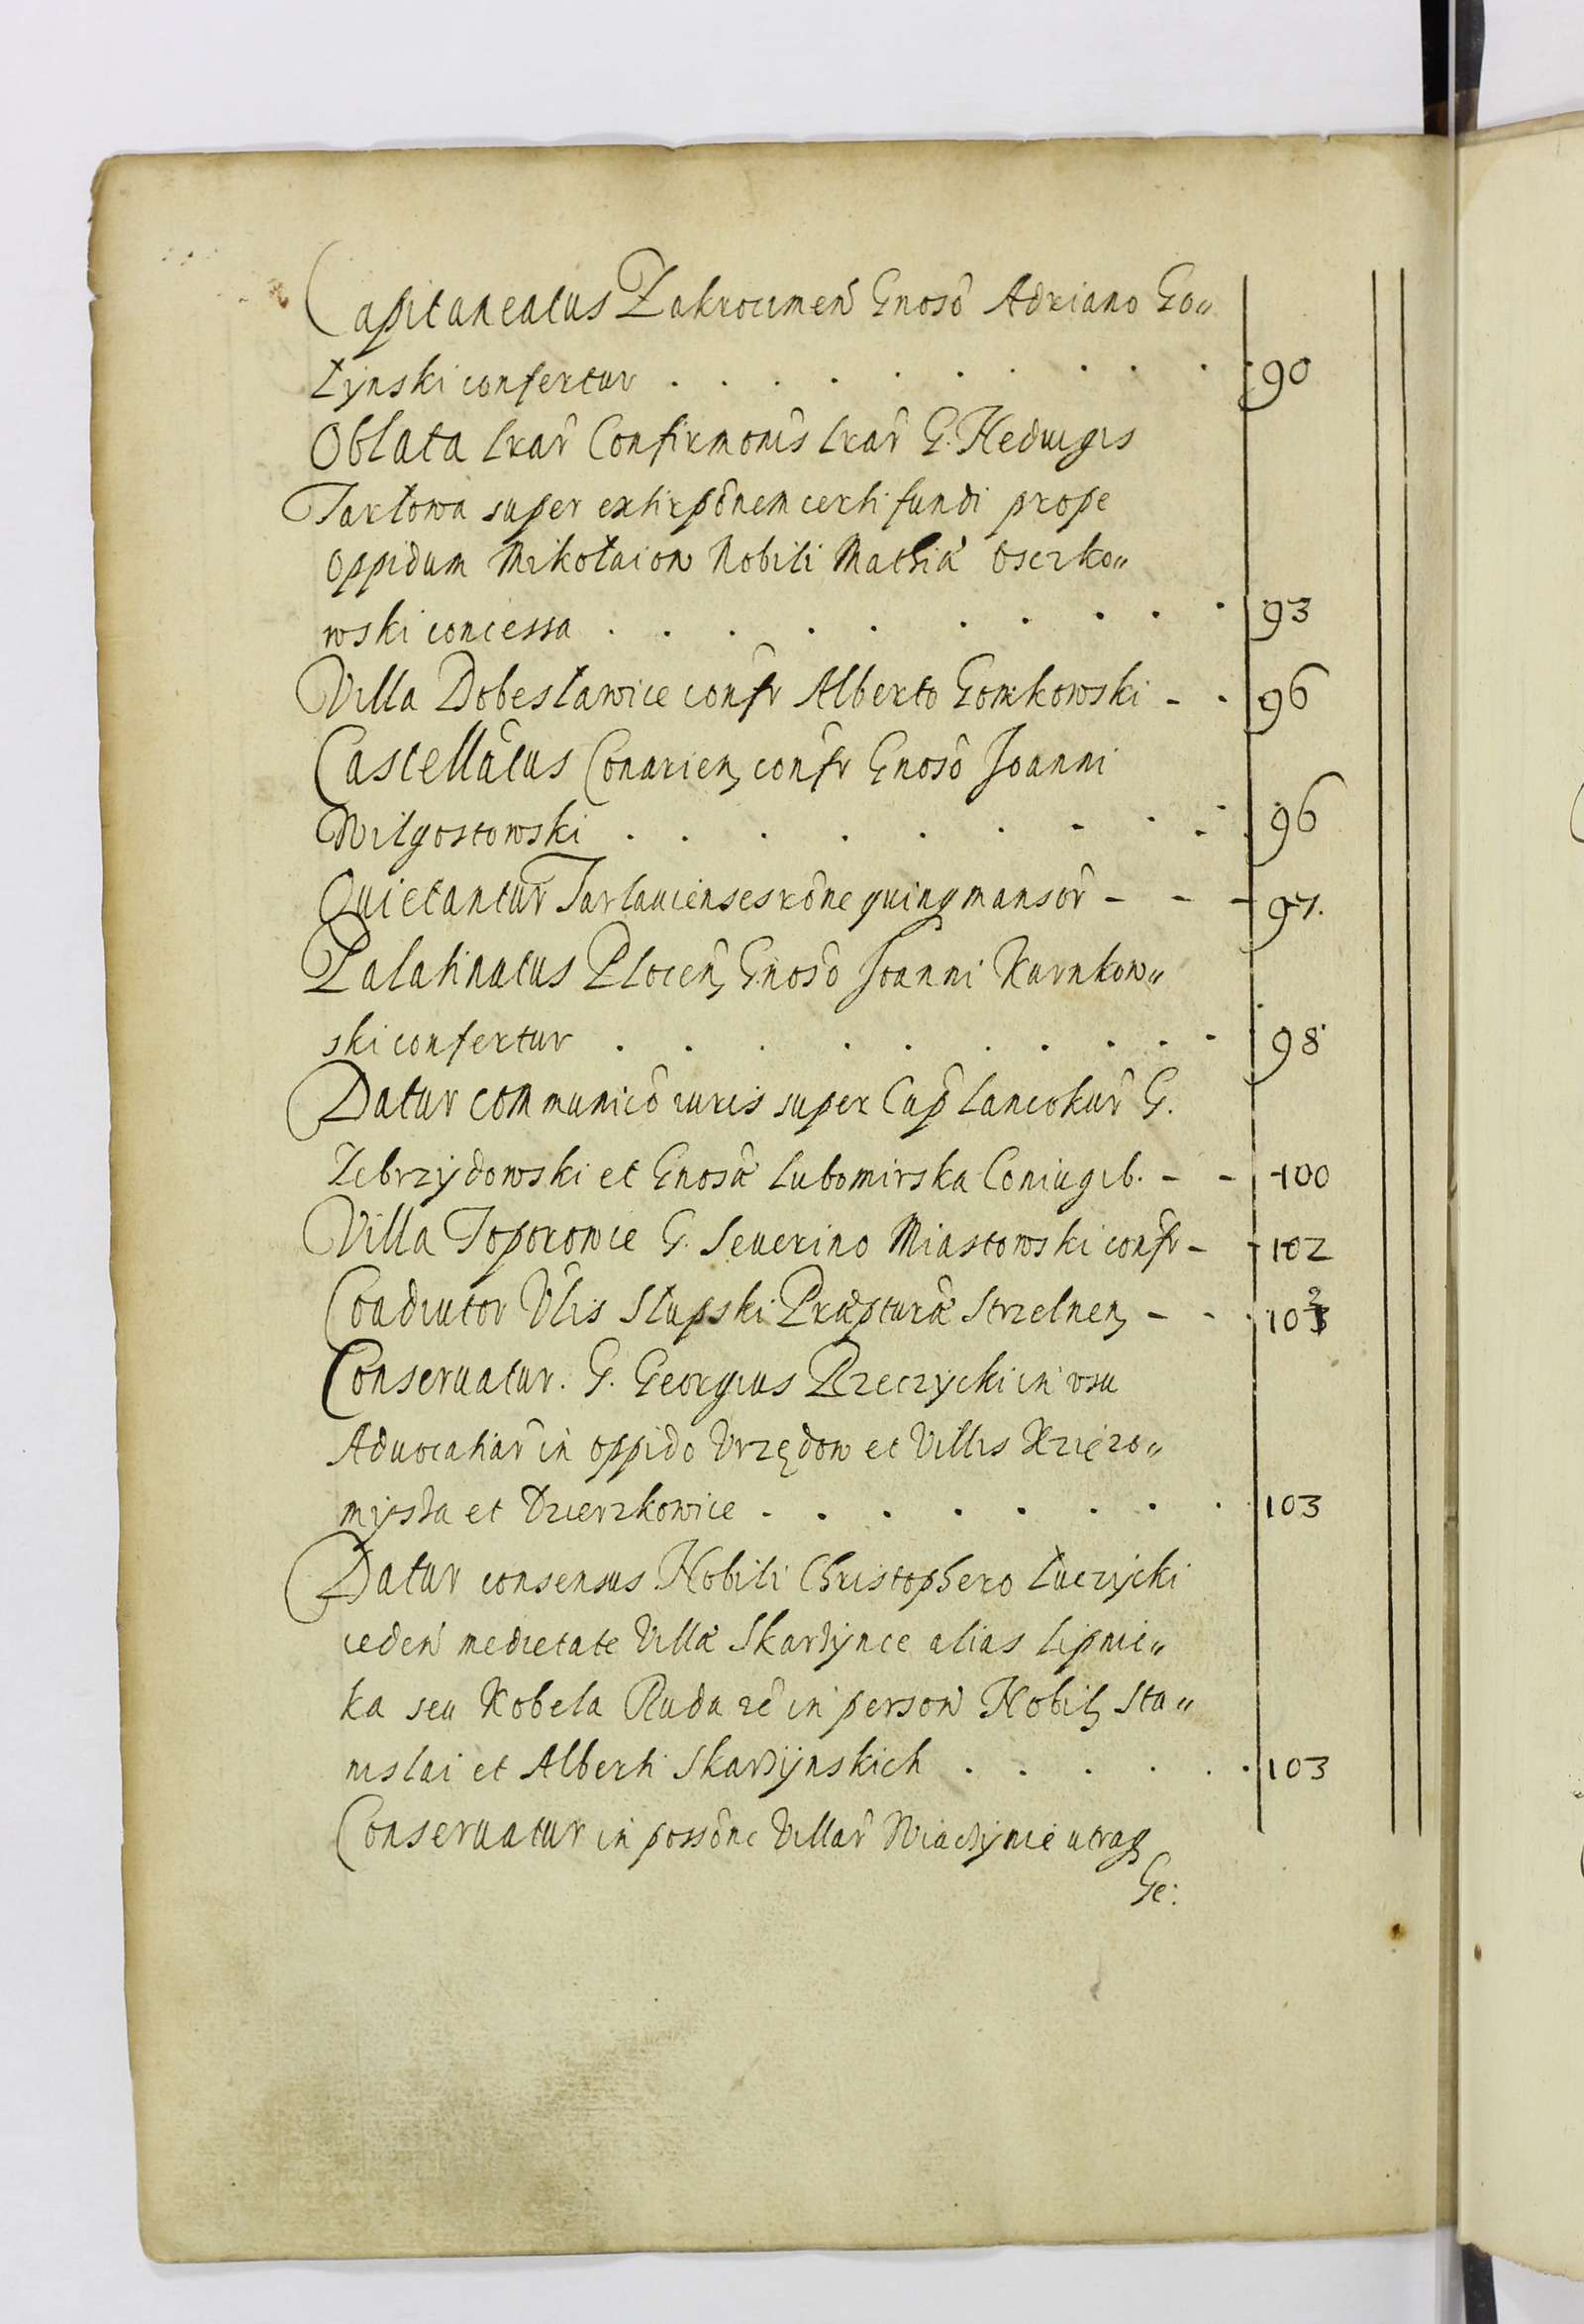 Capitaneatus Zakrocimen̄ Gnoso Adriano Go„
łynski confertur . . . . . . . . . . 90
Oblata Lrar̄ Confirmonis Lrar̄ G. Heduigis
Tarłowa super extirpōnem certi fundi prope
oppidum Mikołaiow Nobili Mathiæ Oserko„
wski concessa . . . . . . . . . . 93
Villa Dobesławice confr̄ Alberto Gomkowski - . 96
Castellātus Conarien, confr̄ Gnosō Joanni
Wilgostowski . . . . . . . . . . 96
Quietantur Tarłauienses rōne quinq mansor̄ - - - 97.
Palatinatus Plocen̄, Gnosō Joanni Karnkow„
ski confertur . . . . . . . . . . 98
Datur communicō iuris super Cap̄ Lanckor̄ G.
Zebrzydowski et Gnosæ Lubomirska Coniugib. - - 100
Villa Toporowce G. Seuerino Miastowski confr̄ - - 102
Coadiutor Vlis Słupski Præpturæ Strzelnen, - . . 102
Conseruatur. G. Georgius Rzeczycki in vsu
Aduocatiar̄ in oppido Vrzędow et Villis Xzięzo„
mijsza et Dzierzkowice . . . . . . . . 103
Datur consensus Nobili Christophero Łuczycki
ceden̄ medietate Villæ Skardynce alias Lipnic„
ka seu Kobela Ruda zē in person̄ Nobil, Sta„
nislai et Alberti Skardynskich . . . . . . 103
Conseruatur in possōne Villar̄ Wiadynie utraq,
Ge: